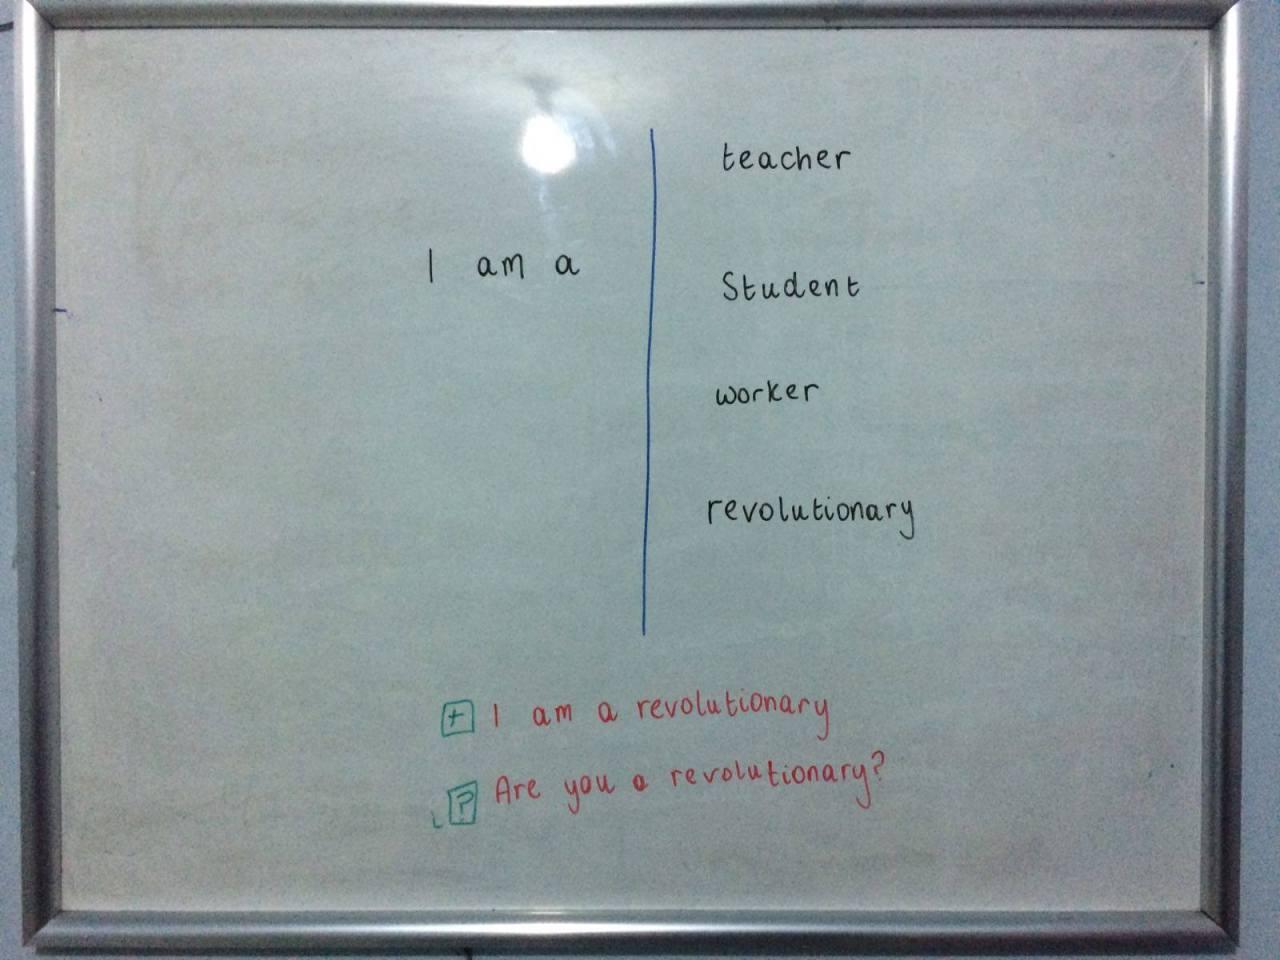 I am a
teacher
Student
worker
revolutionary
+ I am a revolutionary
? Are you a revolutionary?